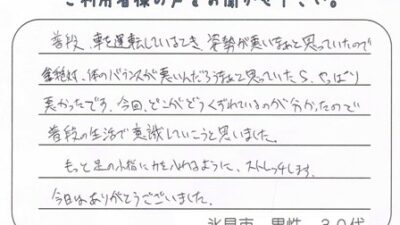 ご利用者様の声をお聞かせ下さい。
普段、車を運転していてき、姿勢が悪いなぁと思っていたので
絶対、体のバランスが悪いんだろうなぁと思っていたら、やっぱり
悪かったです。今回、どこがどうくずれているのが分かったので
普段の生活で意識していこうと思いました。
もっと足の小指に力を入れるように、ストレッチします。
今日はありがとうございました。
氷見市 男性 30代